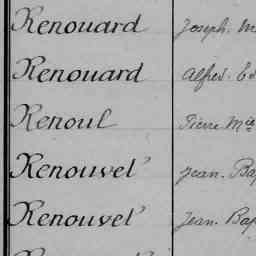 Renouard Joseph. M
Renouard Alfred. Ed
Renoul Pierre Mie
Renouvel Jean. Bap
Renouvel Jean. Bap